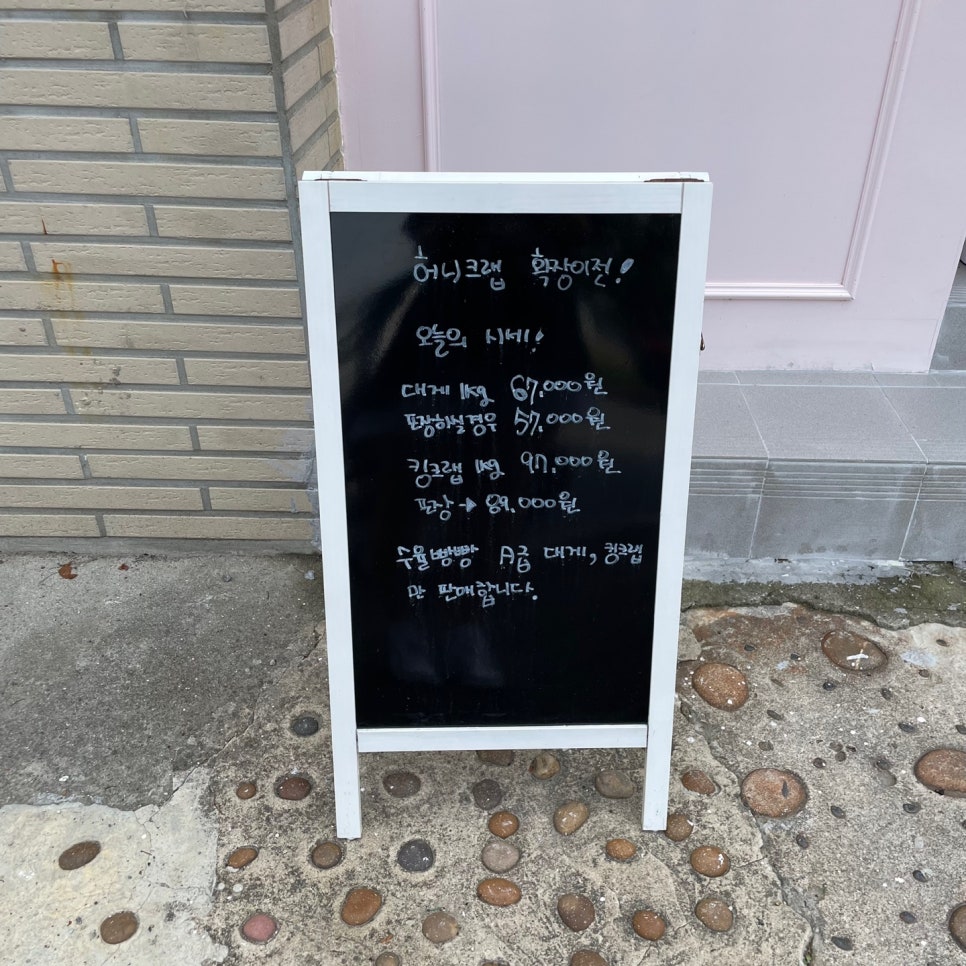 허니크랩 확장이전!
오늘의 시세!
대게 1kg 67.000원
포장하실경우 57.000원
킹크랩 1kg 97.000원
포장 → 89.000원
수율빵빵 A급 대게, 킹크랩
만 판매합니다.